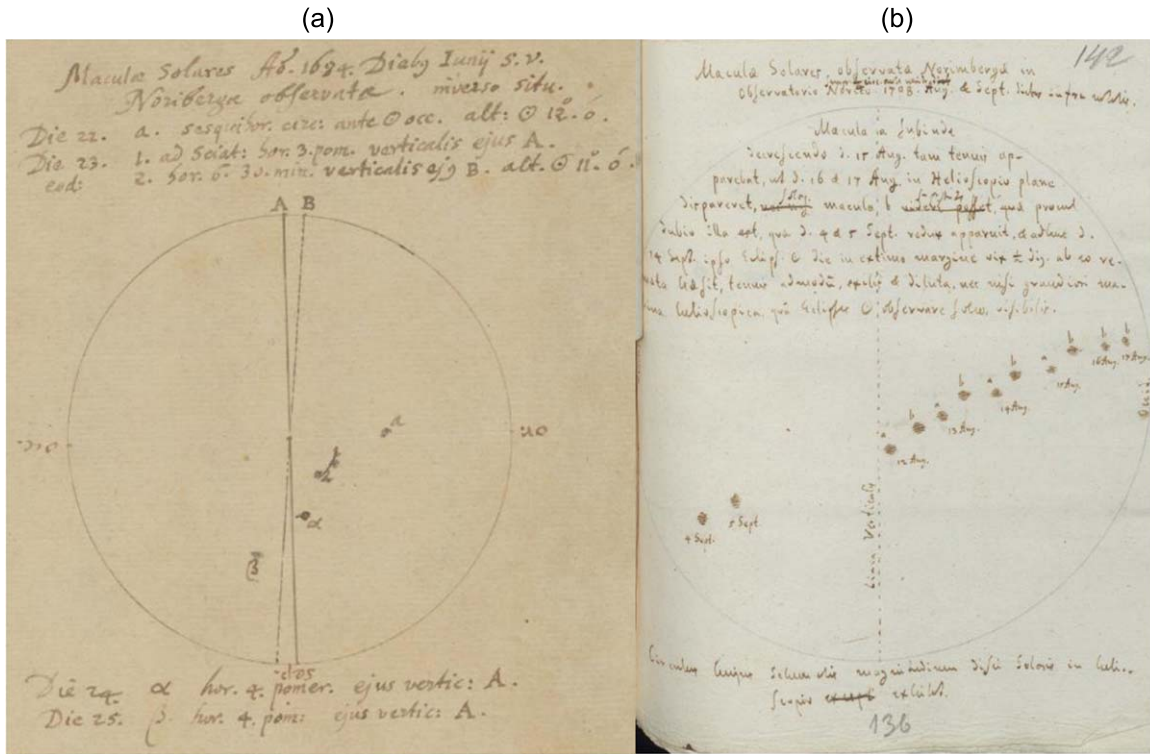 (a)
Maculæ Solares Aō. 1684. Diebꝫ Iunij s. v.
Noribergæ observatæ. inverso situ.
Die 22. a. sesquihor. circ: ante ☉ occ. alt: ☉ 12°. 0'.
Die 23. 1. ad Sciat: hor. 3. pom. verticalis ejus A.
eod: 2. hor. 6. 30. min. verticalis ejꝫ B. alt. ☉ 11°. 0'.
A B
a
2
α
β
Die 24. α hor. 4. pomer. ejus vertic: A.
Die 25. β hor. 4. pom: ejus vertic: A.
(b)
142
Maculæ Solares, observatæ Norimbergæ in
Observatorio 1708. Aug. & Sept.
Macula a subinde
decrescendo d. 15 Aug. tam tenuis ap-
parebat, ut d. 16 & 17 Aug. in Helioscopio plane
dispareret, macula, b quæ procul
dubio illa est, quæ d. 4 & 5 Sept. redux apparuit, & adhuc d.
14 Sept. ipso Eclips. ☉ die in extimo margine vix ab eo re-
tenuis admodū, exilis & diluta, nec nisi grandiori ma-
china helioscopica, quâ Eclipses ☉ observare soleo, visibilis.
b b b a b a b a b a
17 Aug.
16 Aug.
15 Aug.
14 Aug.
13 Aug.
12 Aug.
5 Sept.
4 Sept.
Linea Verticalis
magnitudinem disci Solaris in heli-
scopio exhibet.
136